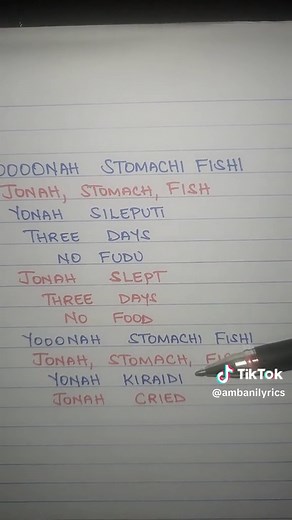 OOOONAH STOMACHI FISHI
JONAH, STOMACH, FISH
YONAH SILEPUTI
THREE DAYS
NO FUDU
JONAH SLEPT
THREE DAYS
NO FOOD
YOOONAH STOMACHI FISHI
JONAH, STOMACH,
YONAH KIRAIDI
JONAH CRIED
TikTok
@ambanilyrics